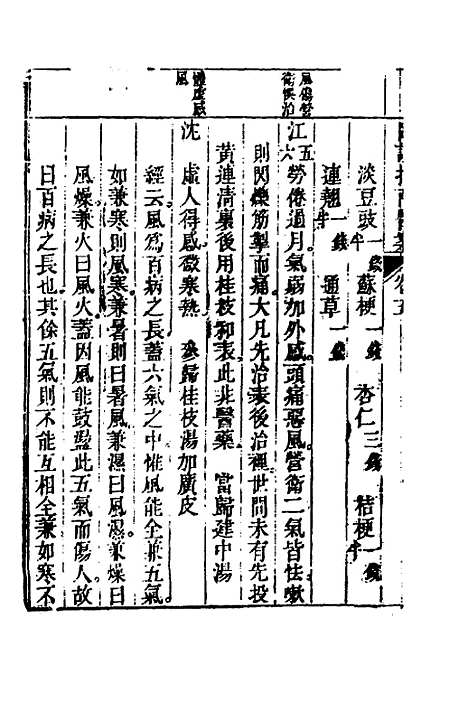 淡豆豉一錢半 蘇梗一錢 杏仁三錢 桔梗一錢半
連翹一錢半 通草一錢
風傷營衛悞治
江五六 勞倦過月氣弱加外感頭痛惡風營衛二氣皆怯嗽
則閃爍筋掣而痛大凡先治表後治裡世間未有先投
黃連清裏後用桂枝和表此非醫藥 當歸建中湯
體虛感風
沈 虛人得感微寒熱 參歸桂枝湯加廣皮
經云風爲百病之長蓋六氣之中惟風能全兼五氣
如兼寒則風寒兼暑則曰暑風兼濕曰風濕兼燥曰
風燥兼火曰風火蓋因風能鼓盪此五氣而傷人故
曰百病之長也其餘五氣則不能互相全兼如寒不